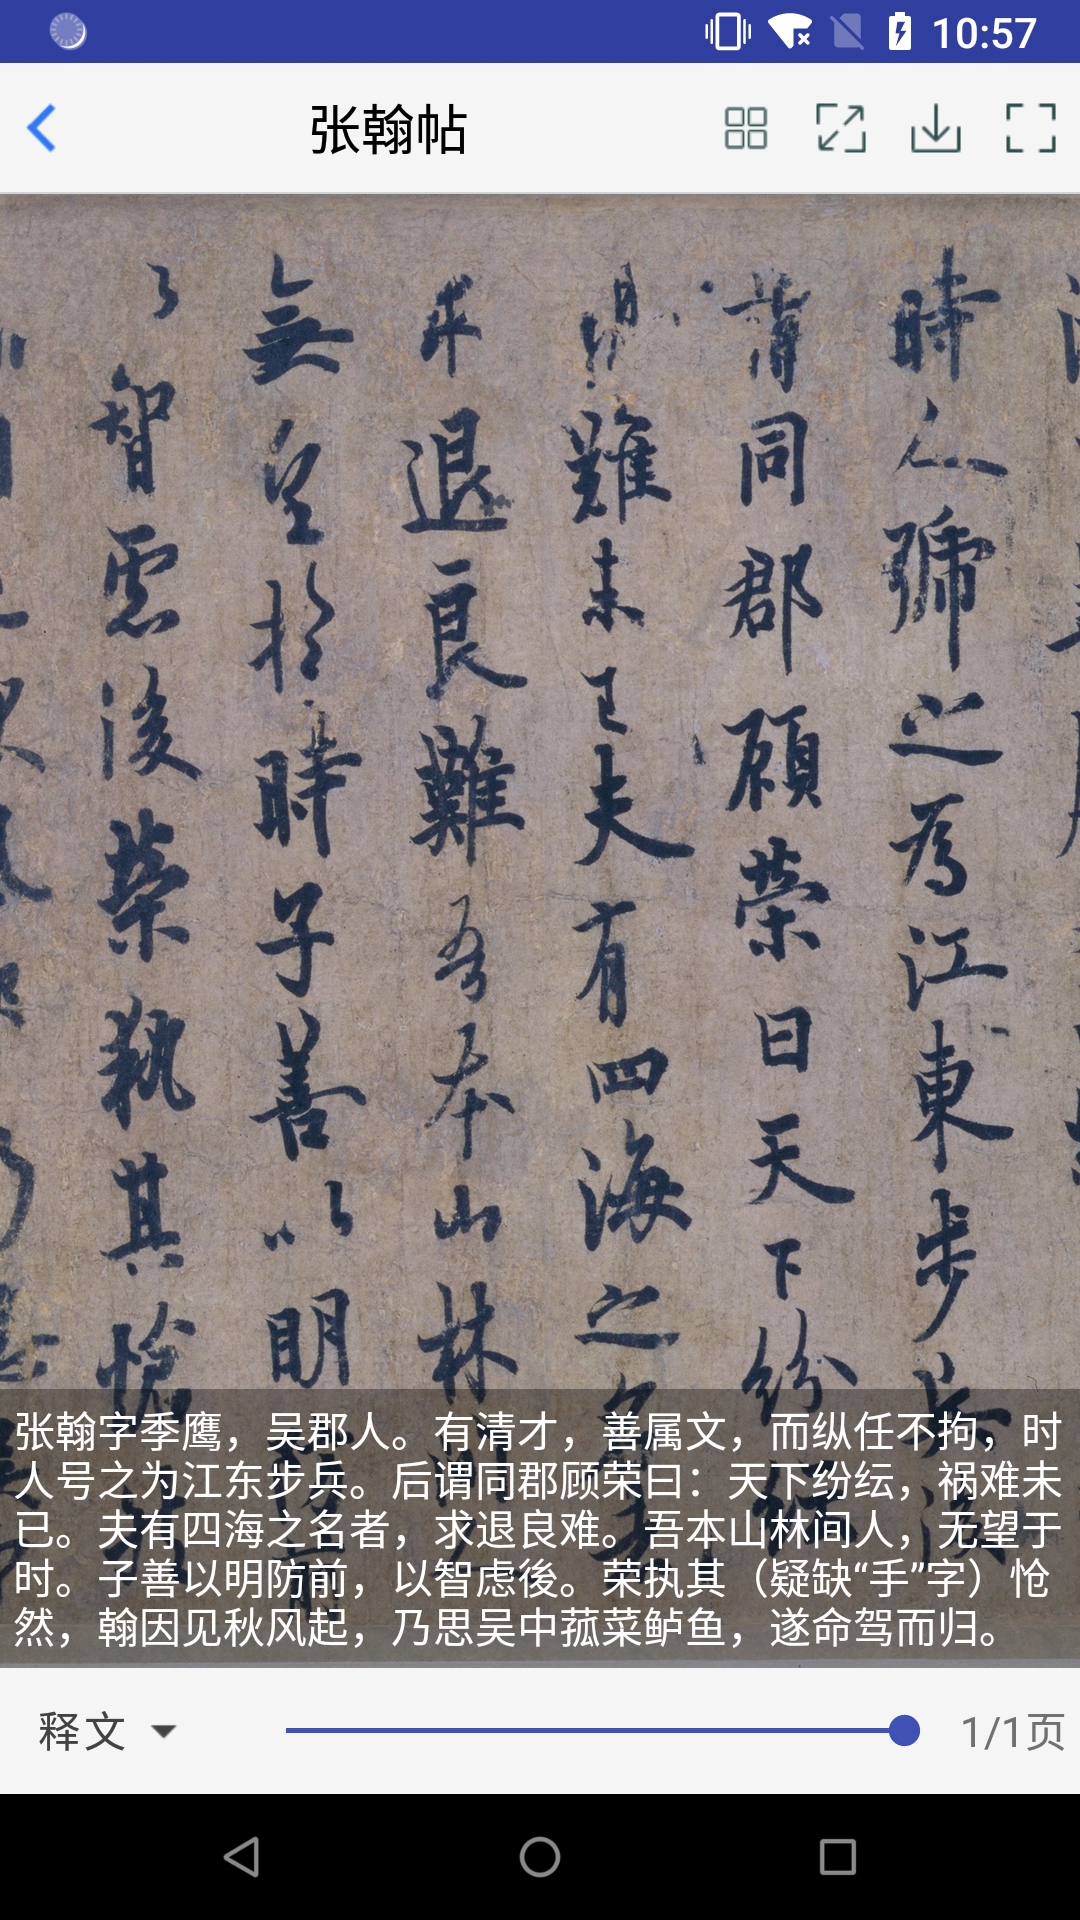 10:57
张翰帖
時人号之為江東步兵後
謂同郡顧荣曰天下紛
難未已夫有四海之名
求退良難吾本山林
無望於時子善以明
以智慮後荣執其愴
张翰字季鹰，吴郡人。有清才，善属文，而纵任不拘，时
人号之为江东步兵。后谓同郡顾荣曰：天下纷纭，祸难未
已。夫有四海之名者，求退良难。吾本山林间人，无望于
时。子善以明防前，以智虑後。荣执其（疑缺“手”字）怆
然，翰因见秋风起，乃思吴中菰菜鲈鱼，遂命驾而归。
释文
1/1页